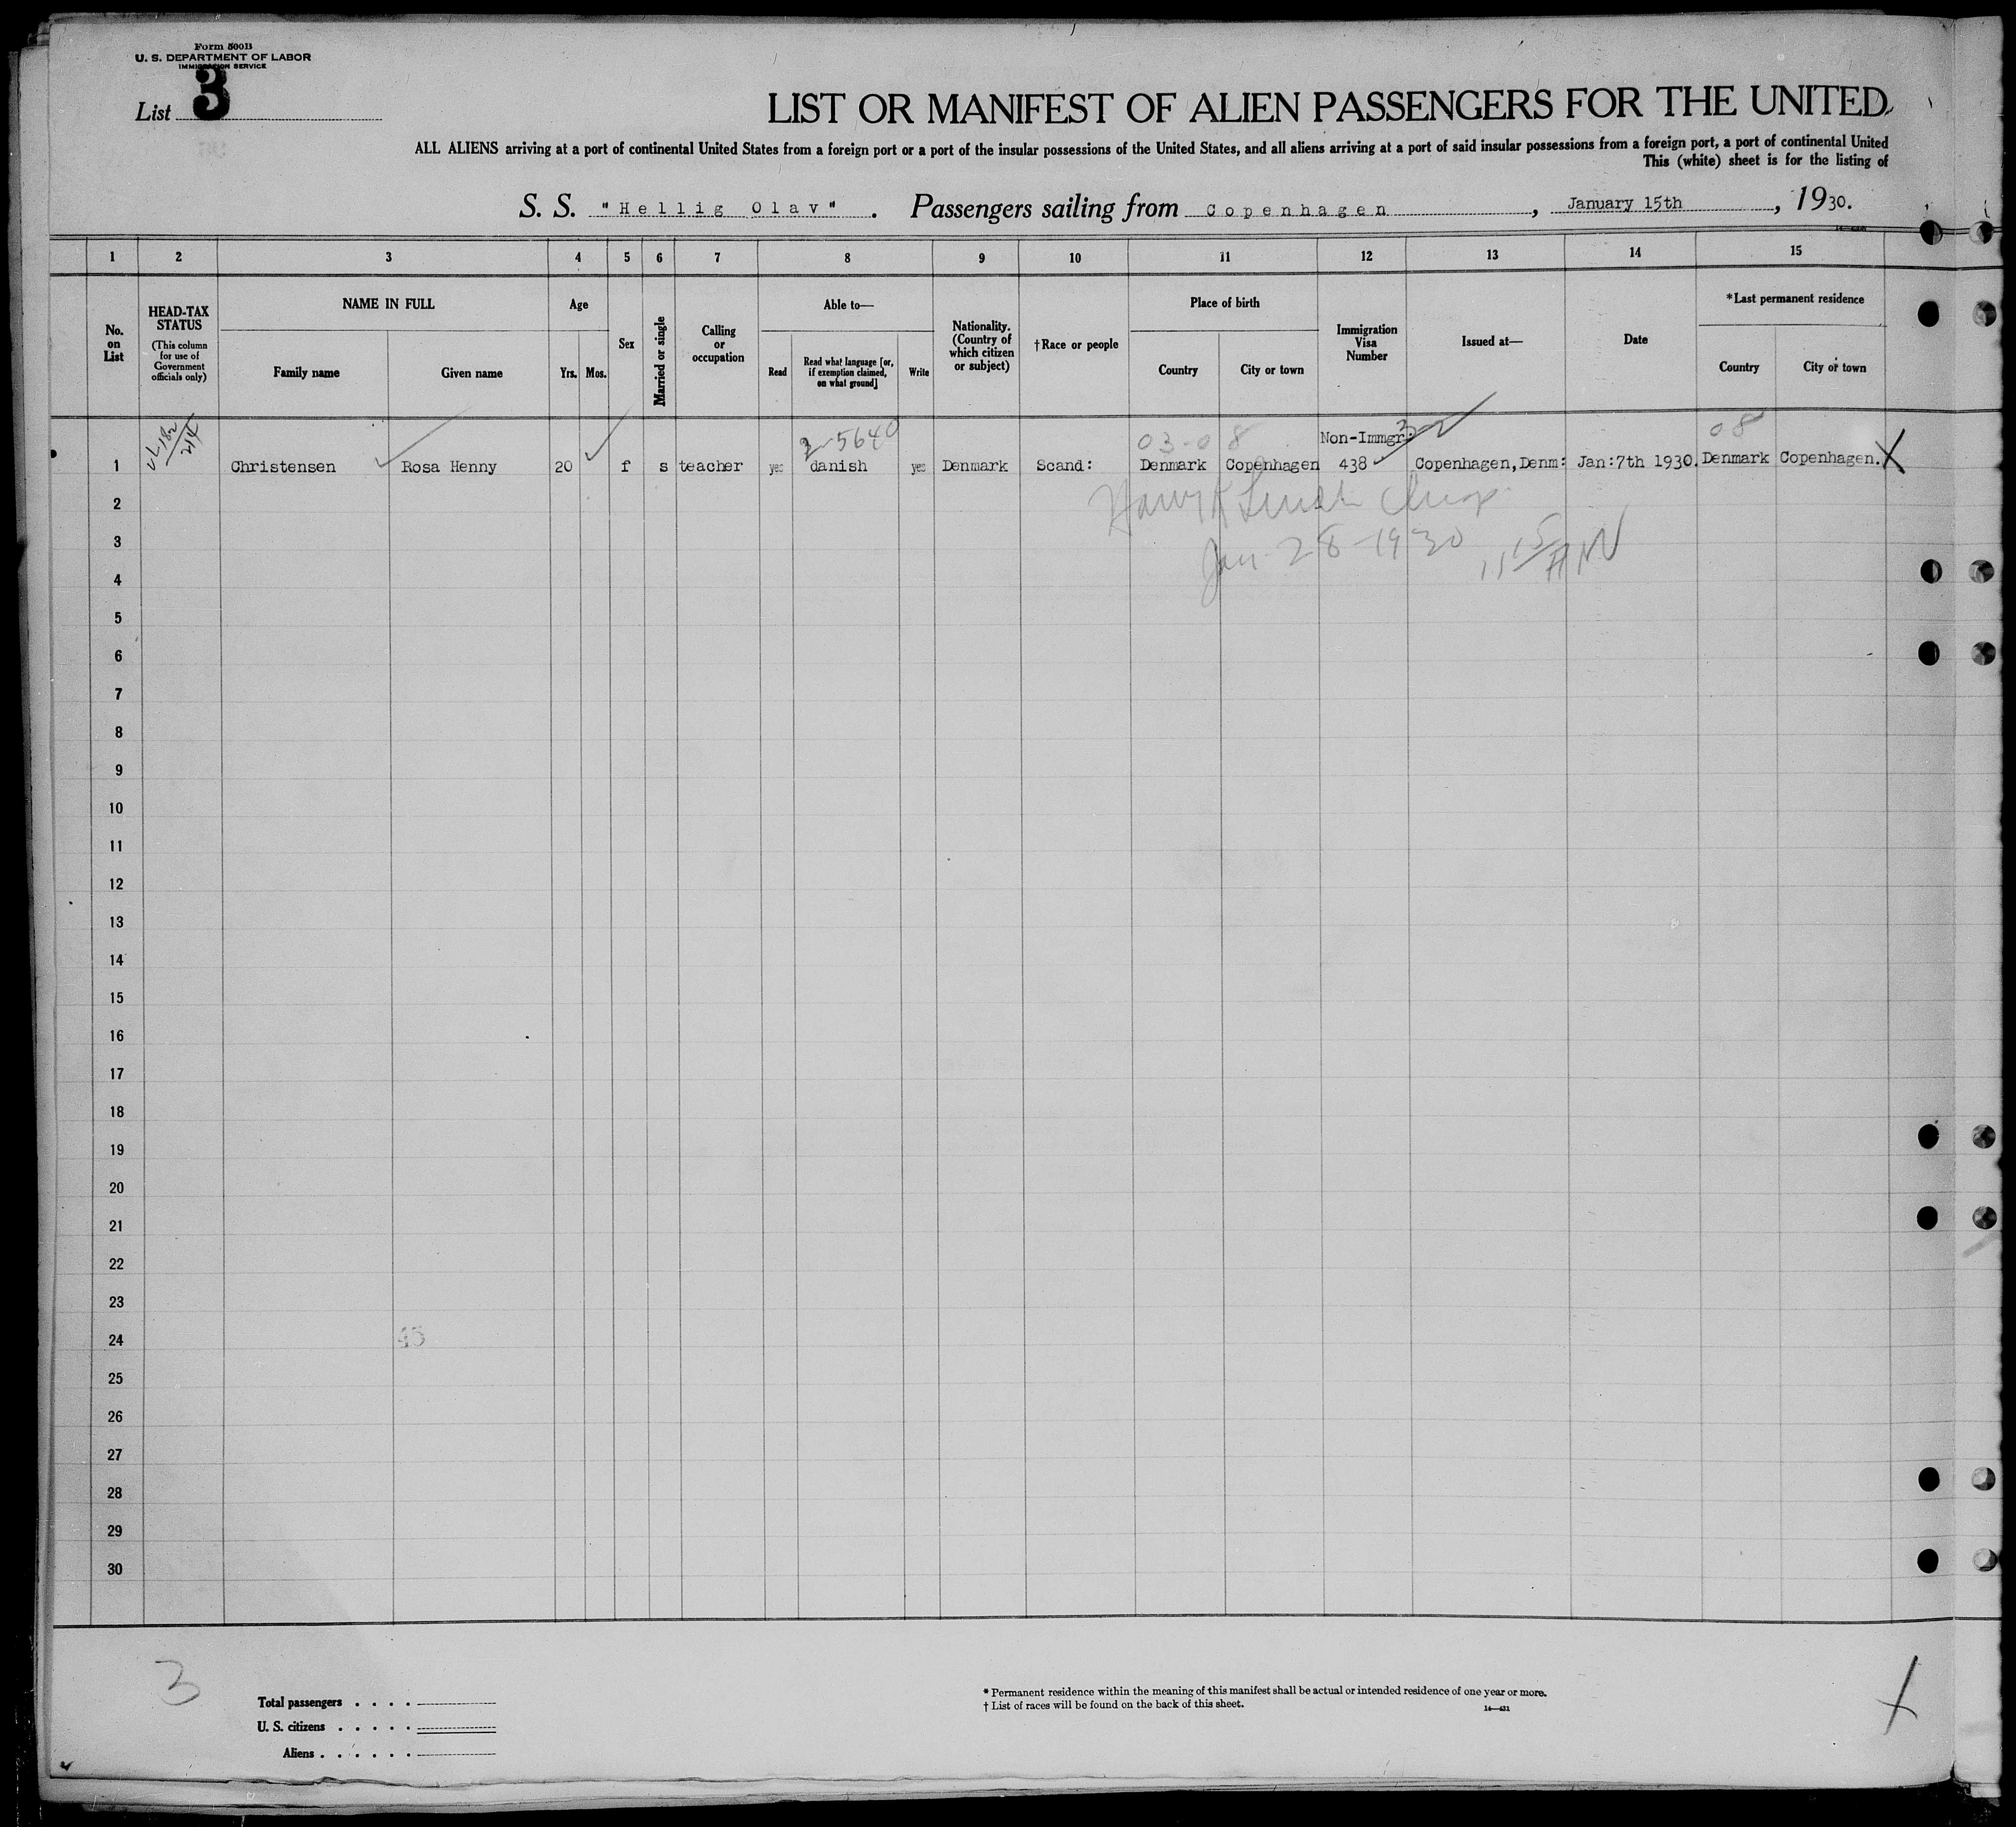 Form 500B
U. S. DEPARTMENT OF LABOR
IMMIGRATION SERVICE
List 3
LIST OR MANIFEST OF ALIEN PASSENGERS FOR THE UNITED
ALL ALIENS arriving at a port of continental United States from a foreign port or a port of the insular possessions of the United States, and all aliens arriving at a port of said insular possessions from a foreign port, a port of continental United
This (white) sheet is for the listing of
S. S. "Hellig Olav". Passengers sailing from Copenhagen, January 15th, 1930.
1 2 3 4 5 6 7 8 9 10 11 12 13 14 15
No. on List
HEAD-TAX STATUS
(This column for use of Government officials only)
NAME IN FULL
Family name Given name
Age
Yrs. Mos.
Sex
Married or single
Calling or occupation
Able to—
Read Read what language [or, if exemption claimed, on what ground] Write
Nationality. (Country of which citizen or subject)
†Race or people
Place of birth
Country City or town
Immigration Visa Number
Issued at—
Date
*Last permanent residence
Country City or town
5640 03-08 Non-Immgr: 08
1 Christensen Rosa Henny 20 f s teacher yes danish yes Denmark Scand: Denmark Copenhagen 438 Copenhagen,Denm: Jan:7th 1930. Denmark Copenhagen. X
2
Jan-28-1930 AM
3
4
5
6
7
8
9
10
11
12
13
14
15
16
17
18
19
20
21
22
23
24
25
26
27
28
29
30
3
Total passengers . . . .
U. S. citizens . . . . .
Aliens . . . . . .
* Permanent residence within the meaning of this manifest shall be actual or intended residence of one year or more.
† List of races will be found on the back of this sheet.